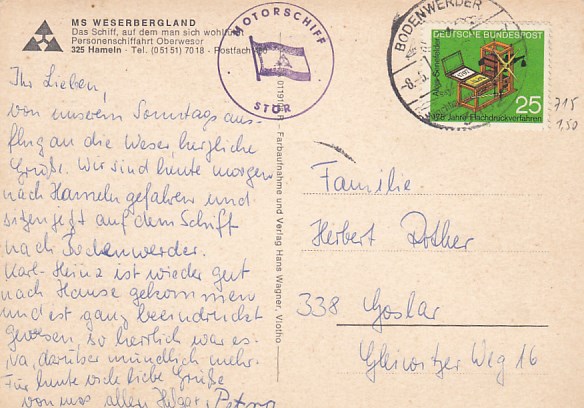 MS WESERBERGLAND
Das Schiff, auf dem man sich wohlfühlt
Personenschiffahrt Oberweser
325 Hameln - Tel. (05151) 7018 - Postfach
MOTORSCHIFF
STÖR
BODENWERDER
DEUTSCHE BUNDESPOST
Alois Senefelder
25
175 Jahre Flachdruckverfahren
715
1,50
Farbaufnahme und Verlag Hans Wagner, Vlotho
Ihr Lieben,
von unserem Sonntagsaus-
flug an die Weser herzliche
Grüße. Wir sind heute morgen
nach Hameln gefahren und
sitzen jetzt auf dem Schiff
nach Bodenwerder.
Karl-Heinz ist wieder gut
nach Hause gekommen
und ist ganz beeindruckt
gewesen, so herrlich war es.
Na, darüber mündlich mehr.
Für heute recht liebe Grüße
von uns allen Holger, Petra
Familie
Herbert Rother
338 Goslar
Gleiwitzer Weg 16